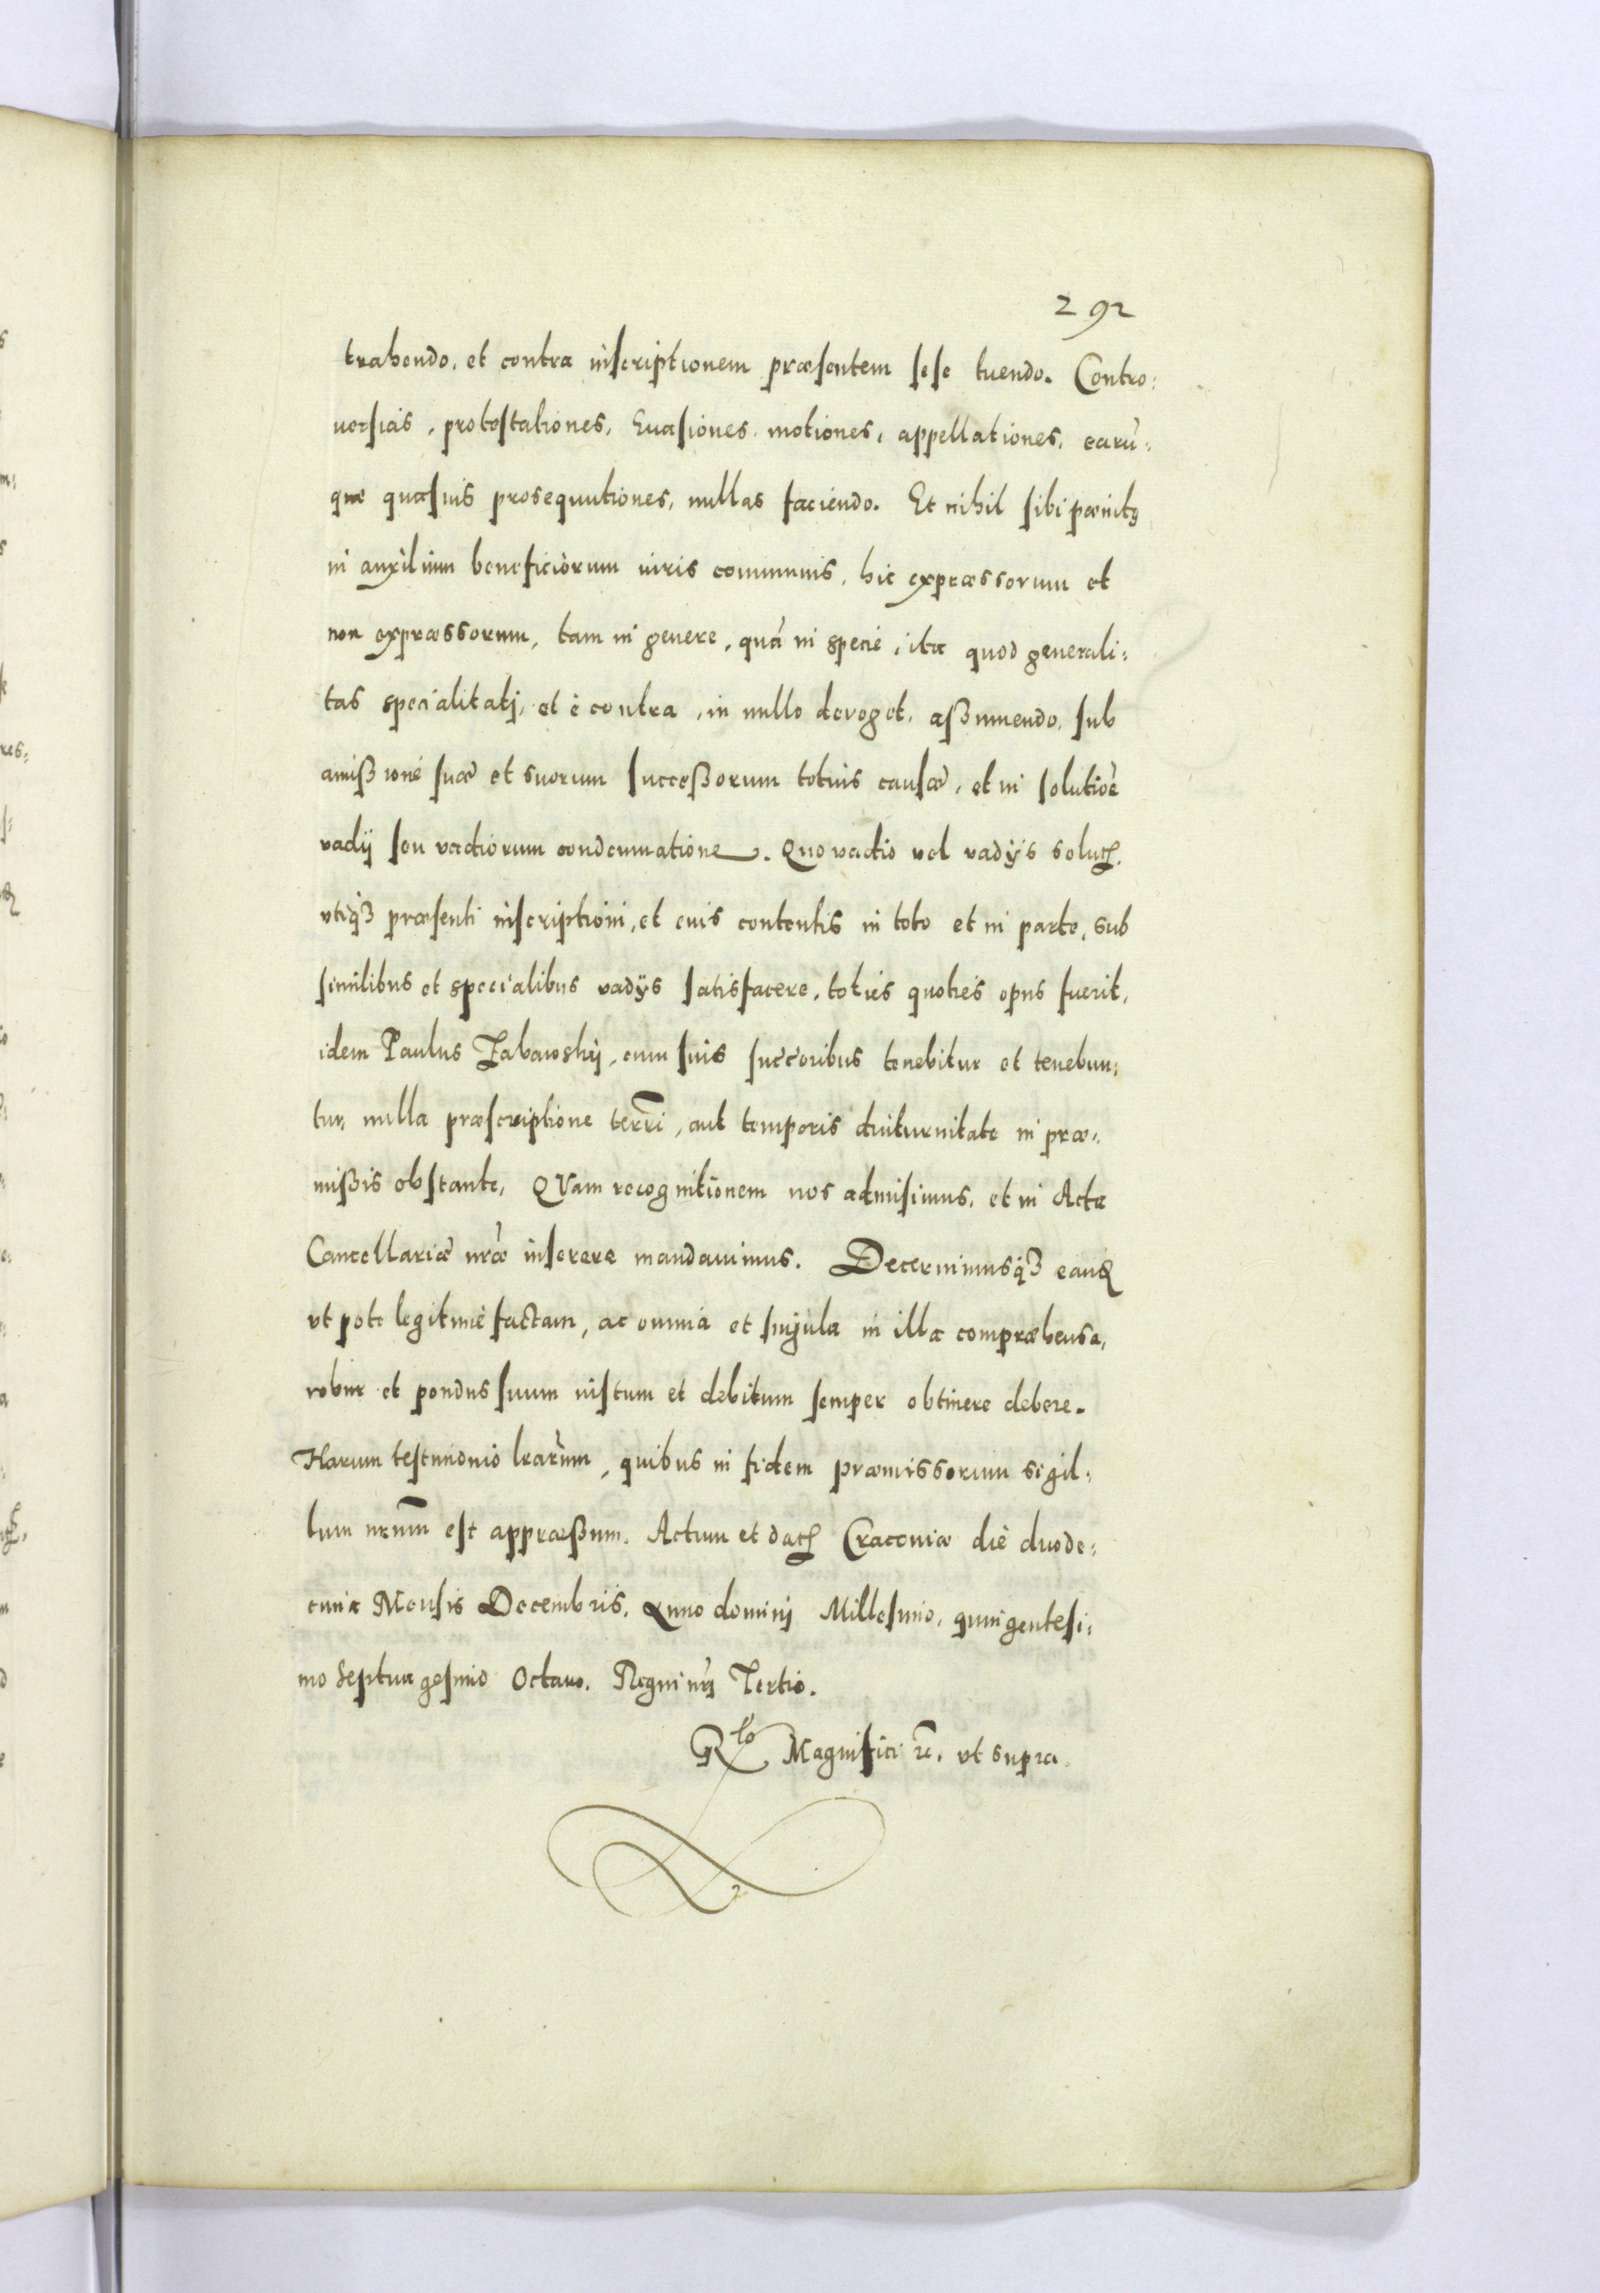 292
trahendo, et contra inscriptionem præsentem sese tuendo. Contro:
uersias, protestationes, Euasiones, motiones, appellationes, earũ:
que quasuis prosequutiones, nullas faciendo. Et nihil sibi pænitꝰ
in auxilium beneficiorum iuris communis, hic expræssorum et
non expræssorum, tam in genere, quã in specie, ita quod generali:
tas specialitatj, et è contra, in nullo deroget, aßumendo, sub
amißionè suæ et suorum Succeßorum totius causæ, et in solutiõe
vadij seu vadiorum condemnatione. Quo vadio vel vadÿs solut̃,
vtiqȝ præsenti inscriptioni, et euis contentis in toto et in parte, sub
similibus et specialibus vadÿs satisfacere, toties quoties opus fuerit,
idem Paulus Zabawskij, cum suis succ̃oribus tenebitur et tenebun:
tur, nulla præscriptione terr̃i, aut temporis diuturnitate in præ:
mißis obstante, QVam recognitionem nos admisimus, et in Acta
Cancellariæ nr̃æ inserere mandauimus. Decernimusqȝ eand̃
vt pote legitimè factam, ac omnia et singula in illa compræhensa,
robur et pondus suum iustum et debitum semper obtinere debere.
Harum testimonio lr̃arum, quibus in fidem præmissorum sigil:
lum nr̃um est appræßum. Actum et dat̃ Cracouiæ diè duode:
cima Mensis Decembris, Anno dominj Millesimo, quingentesi:
mo Septuagesimo Octauo. Regni nr̃j Tertio.
Rlo Magnifici ꝛc. vt supra.